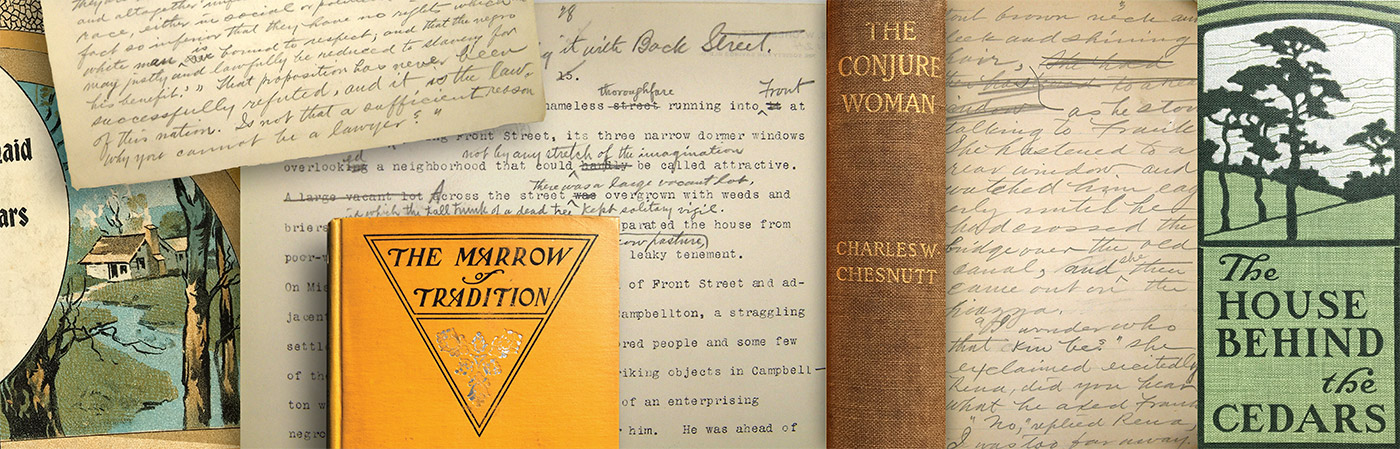 and altogether
race, either in social or
fact so inferior that they have no right which
white man is bound to respect; and that the negro
may justly and lawfully be reduced to slavery for
his benefit.'" That proposition has never been
successfully refuted, and it is the law
of this nation. Is not that a sufficient reason
why you cannot be a lawyer?"
aid
ars
28
it with Back Street.
15.
thoroughfare Front
nameless street running into it at
Front Street, its three narrow dormer windows
ed not by any stretch of the imagination
overlooking a neighborhood that could hardly be called attractive.
there was a large vacant lot,
A large vacant lot Across the street was overgrown with weeds and
in which the tall trunk of a dead tree kept solitary vigil.
briers parated the house from
ow pasture,
poor- leaky tenement.
On Mi of Front Street and ad-
jacent ampbellton, a straggling
settl red people and some few
of the riking objects in Campbell-
ton w of an enterprising
negro him. He was ahead of
THE MARROW
of
TRADITION
THE
CONJURE
WOMAN
CHARLES W.
CHESNUTT
brown neck and
and shining
hair, she had
as he stood
talking to Frank.
She hastened to a
rear window and
watched him eag
erly until he
had crossed the
bridge over the old
canal, and she then
came out on the
piazza.
"I wonder who
that kin be?" she
exclaimed excitedly
Rena, did you hear
what he asked Frank
"No," replied Rena,
I was too far away.
The
HOUSE
BEHIND
the
CEDARS